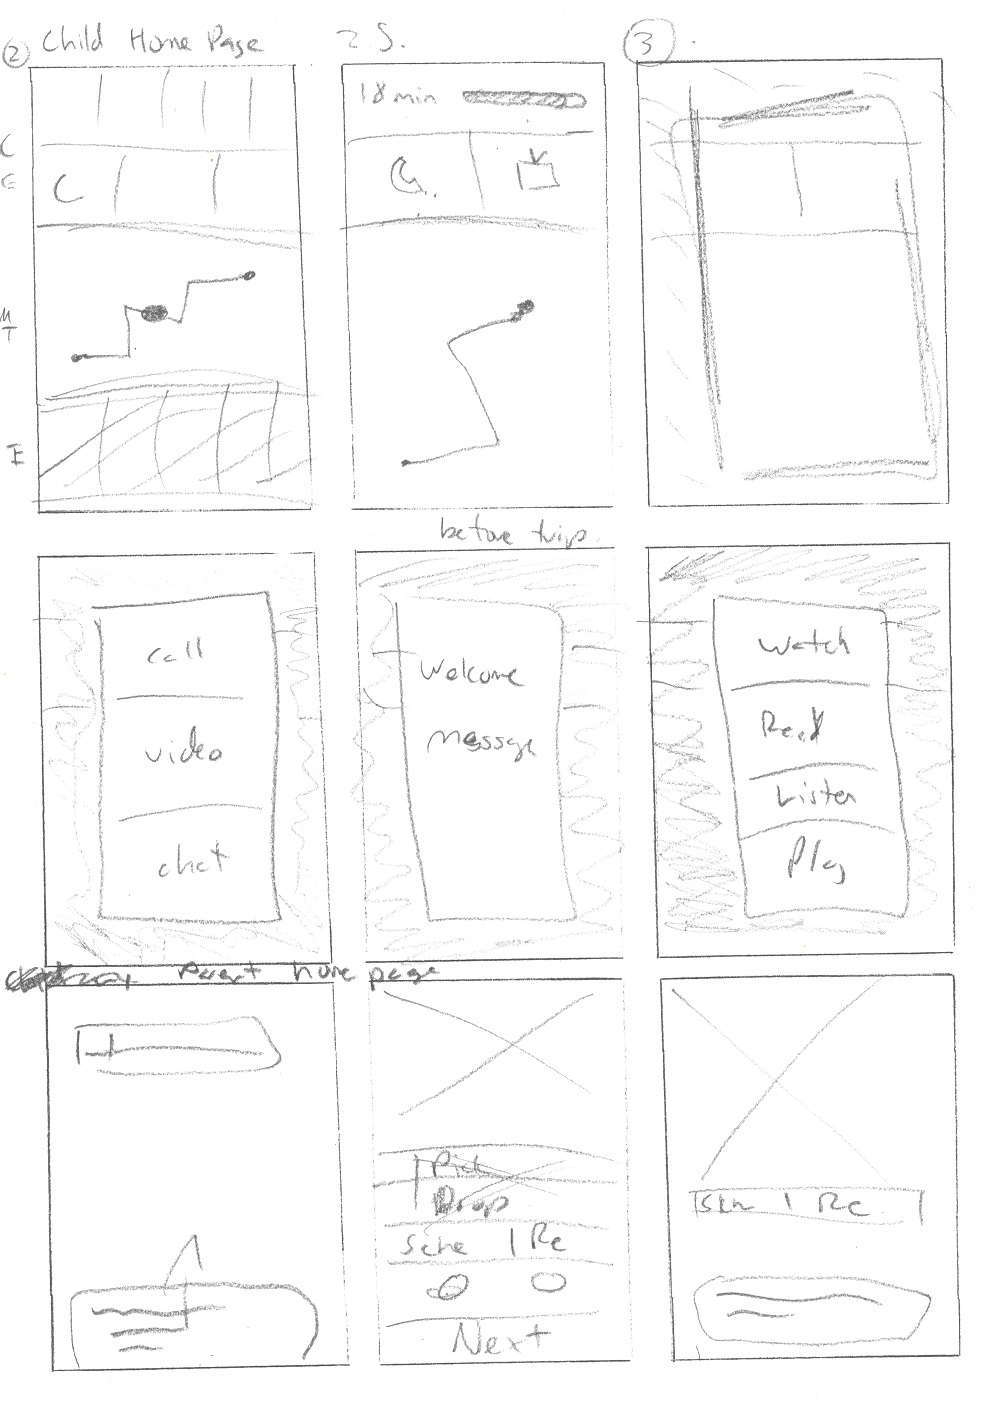 2 Child Home Page
2.S.
3
C
E
18 min
C
M
T
E
before trips
call
video
chat
Welcome
message
Watch
Read
Listen
Play
Parent home page
Pick
Drop
Sche | Re
Next
Sche | Re